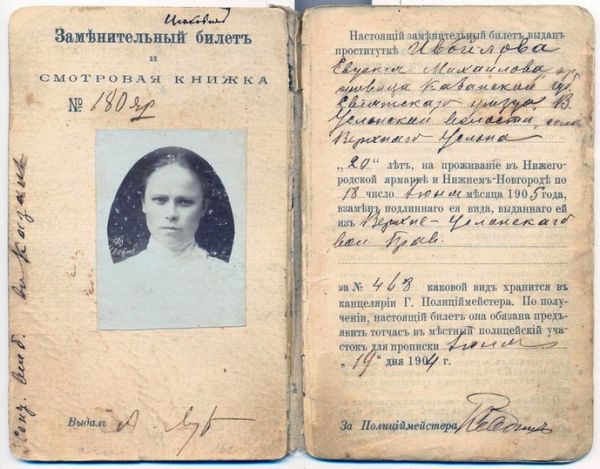 Замѣнительный билетъ
и
СМОТРОВАЯ КНИЖКА
№ 180 яр
Выдалъ
Настоящій замѣнительный билетъ выданъ
проституткѣ
Евдокія Михайлова
Казанской губ
уѣзда, В.
Услонской волости, села
Верхняго Услона
„20" лѣтъ, на проживаніе въ Нижего-
родской ярмаркѣ и Нижнемъ-Новгородѣ по
18 число Іюня мѣсяца 1905 года,
взамѣнъ подлиннаго ея вида, выданнаго ей
изъ Верхне-Услонскаго
вол Прав.
за № 468 каковой видъ хранится въ
канцеляріи Г. Полиціймейстера. По полу-
ченіи, настоящій билетъ она обязана предъ-
явить тотчасъ въ мѣстный полицейскій уча-
стокъ для прописки Іюня
„19" дня 1904 г.
За Полиціймейстера